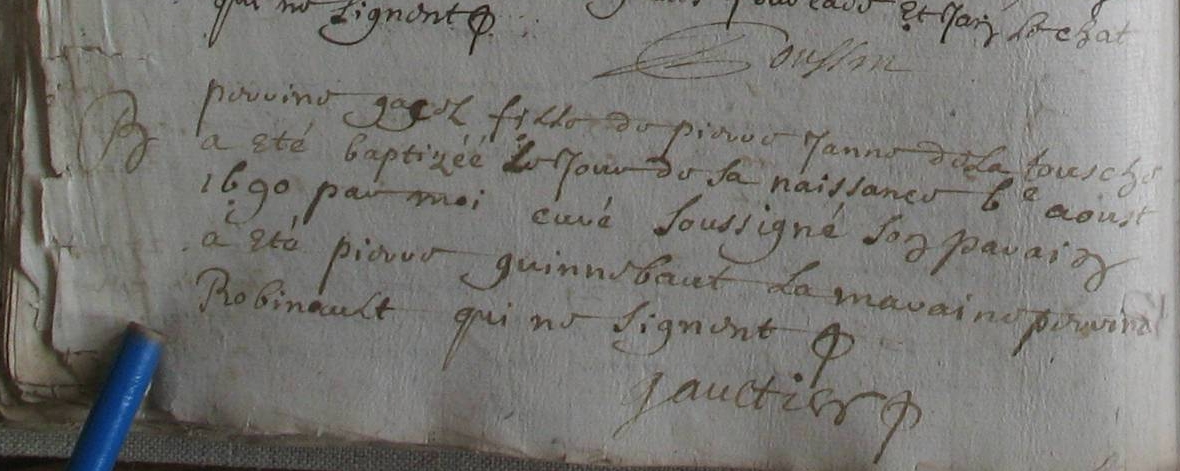 qui ne signent et Jan Le chat
Poussin
B
perrine gacel fille de pierre Janne de La tousche
a eté baptizéé le Jour de sa naissance 6e aoust
1690 par moi curé soussigné son parain
a eté pierre guinnebaut La maraine perrine
Robinault qui ne signent
gaultier